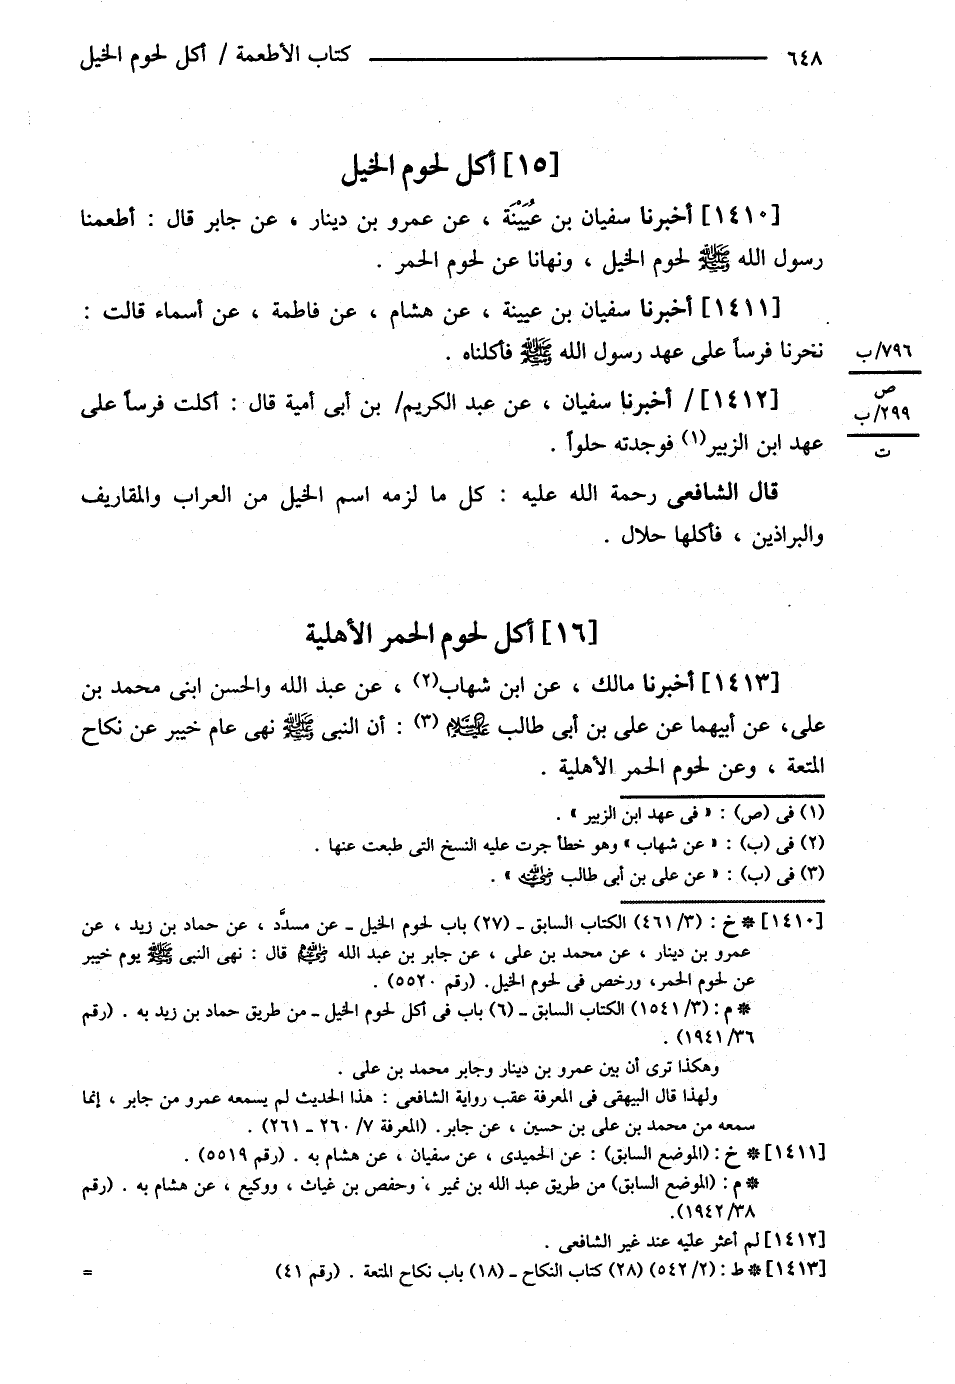 ٦٤٨ كتاب الأطعمة / أكل لحوم الخيل
[١٥] أكل لحوم الخيل
[١٤١٠] أخبرنا سفيان بن عُيَيْنَة ، عن عمرو بن دينار ، عن جابر قال : أطعمنا
رسول الله ﷺ لحوم الخيل ، ونهانا عن لحوم الحمر .
[١٤١١] أخبرنا سفيان بن عيينة ، عن هشام ، عن فاطمة ، عن أسماء قالت :
نحرنا فرساً على عهد رسول الله ﷺ فأكلناه .
٧٩٦/ب
ص
[١٤١٢] / أخبرنا سفيان ، عن عبد الكريم/ بن أبى أمية قال : أكلت فرساً على
٢٩٩/ب
عهد ابن الزبير(١) فوجدته حلواً .
ت
قال الشافعى رحمة الله عليه : كل ما لزمه اسم الخيل من العراب والمقاريف
والبراذين ، فأكلها حلال .
[١٦] أكل لحوم الحمر الأهلية
[١٤١٣] أخبرنا مالك ، عن ابن شهاب(٢) ، عن عبد الله والحسن ابنى محمد بن
على، عن أبيهما عن على بن أبى طالب عليه السلام (٣) : أن النبى ﷺ نهى عام خيبر عن نكاح
المتعة ، وعن لحوم الحمر الأهلية .
(١) فى (ص) : « فى عهد ابن الزبير » .
(٢) فى (ب) : « عن شهاب » وهو خطأ جرت عليه النسخ التى طبعت عنها .
(٣) فى (ب) : « عن على بن أبى طالب رضي الله عنه » .
[١٤١٠] * خ : (٣/ ٤٦١) الكتاب السابق ـ (٢٧) باب لحوم الخيل ـ عن مسدَّد ، عن حماد بن زيد ، عن
عمرو بن دينار ، عن محمد بن على ، عن جابر بن عبد الله رضي الله عنهما قال : نهى النبى ﷺ يوم خيبر
عن لحوم الحمر، ورخص فى لحوم الخيل. (رقم ٥٥٢٠) .
* م : (٣/ ١٥٤١) الكتاب السابق ـ (٦) باب فى أكل لحوم الخيل ـ من طريق حماد بن زيد به . (رقم
٣٦/ ١٩٤١) .
وهكذا ترى أن بين عمرو بن دينار وجابر محمد بن على .
ولهذا قال البيهقى فى المعرفة عقب رواية الشافعى : هذا الحديث لم يسمعه عمرو من جابر ، إنما
سمعه من محمد بن على بن حسين ، عن جابر. (المعرفة ٧/ ٢٦٠ ـ ٢٦١) .
[١٤١١] * خ : (الموضع السابق) : عن الحميدى ، عن سفيان ، عن هشام به . (رقم ٥٥١٩) .
* م : (الموضع السابق) من طريق عبد الله بن نمير ، وحفص بن غياث ، ووكيع ، عن هشام به . (رقم
٣٨/ ١٩٤٢).
[١٤١٢] لم أعثر عليه عند غير الشافعى .
[١٤١٣] * ط : (٢/ ٥٤٢) (٢٨) كتاب النكاح ـ (١٨) باب نكاح المتعة . (رقم ٤١) =